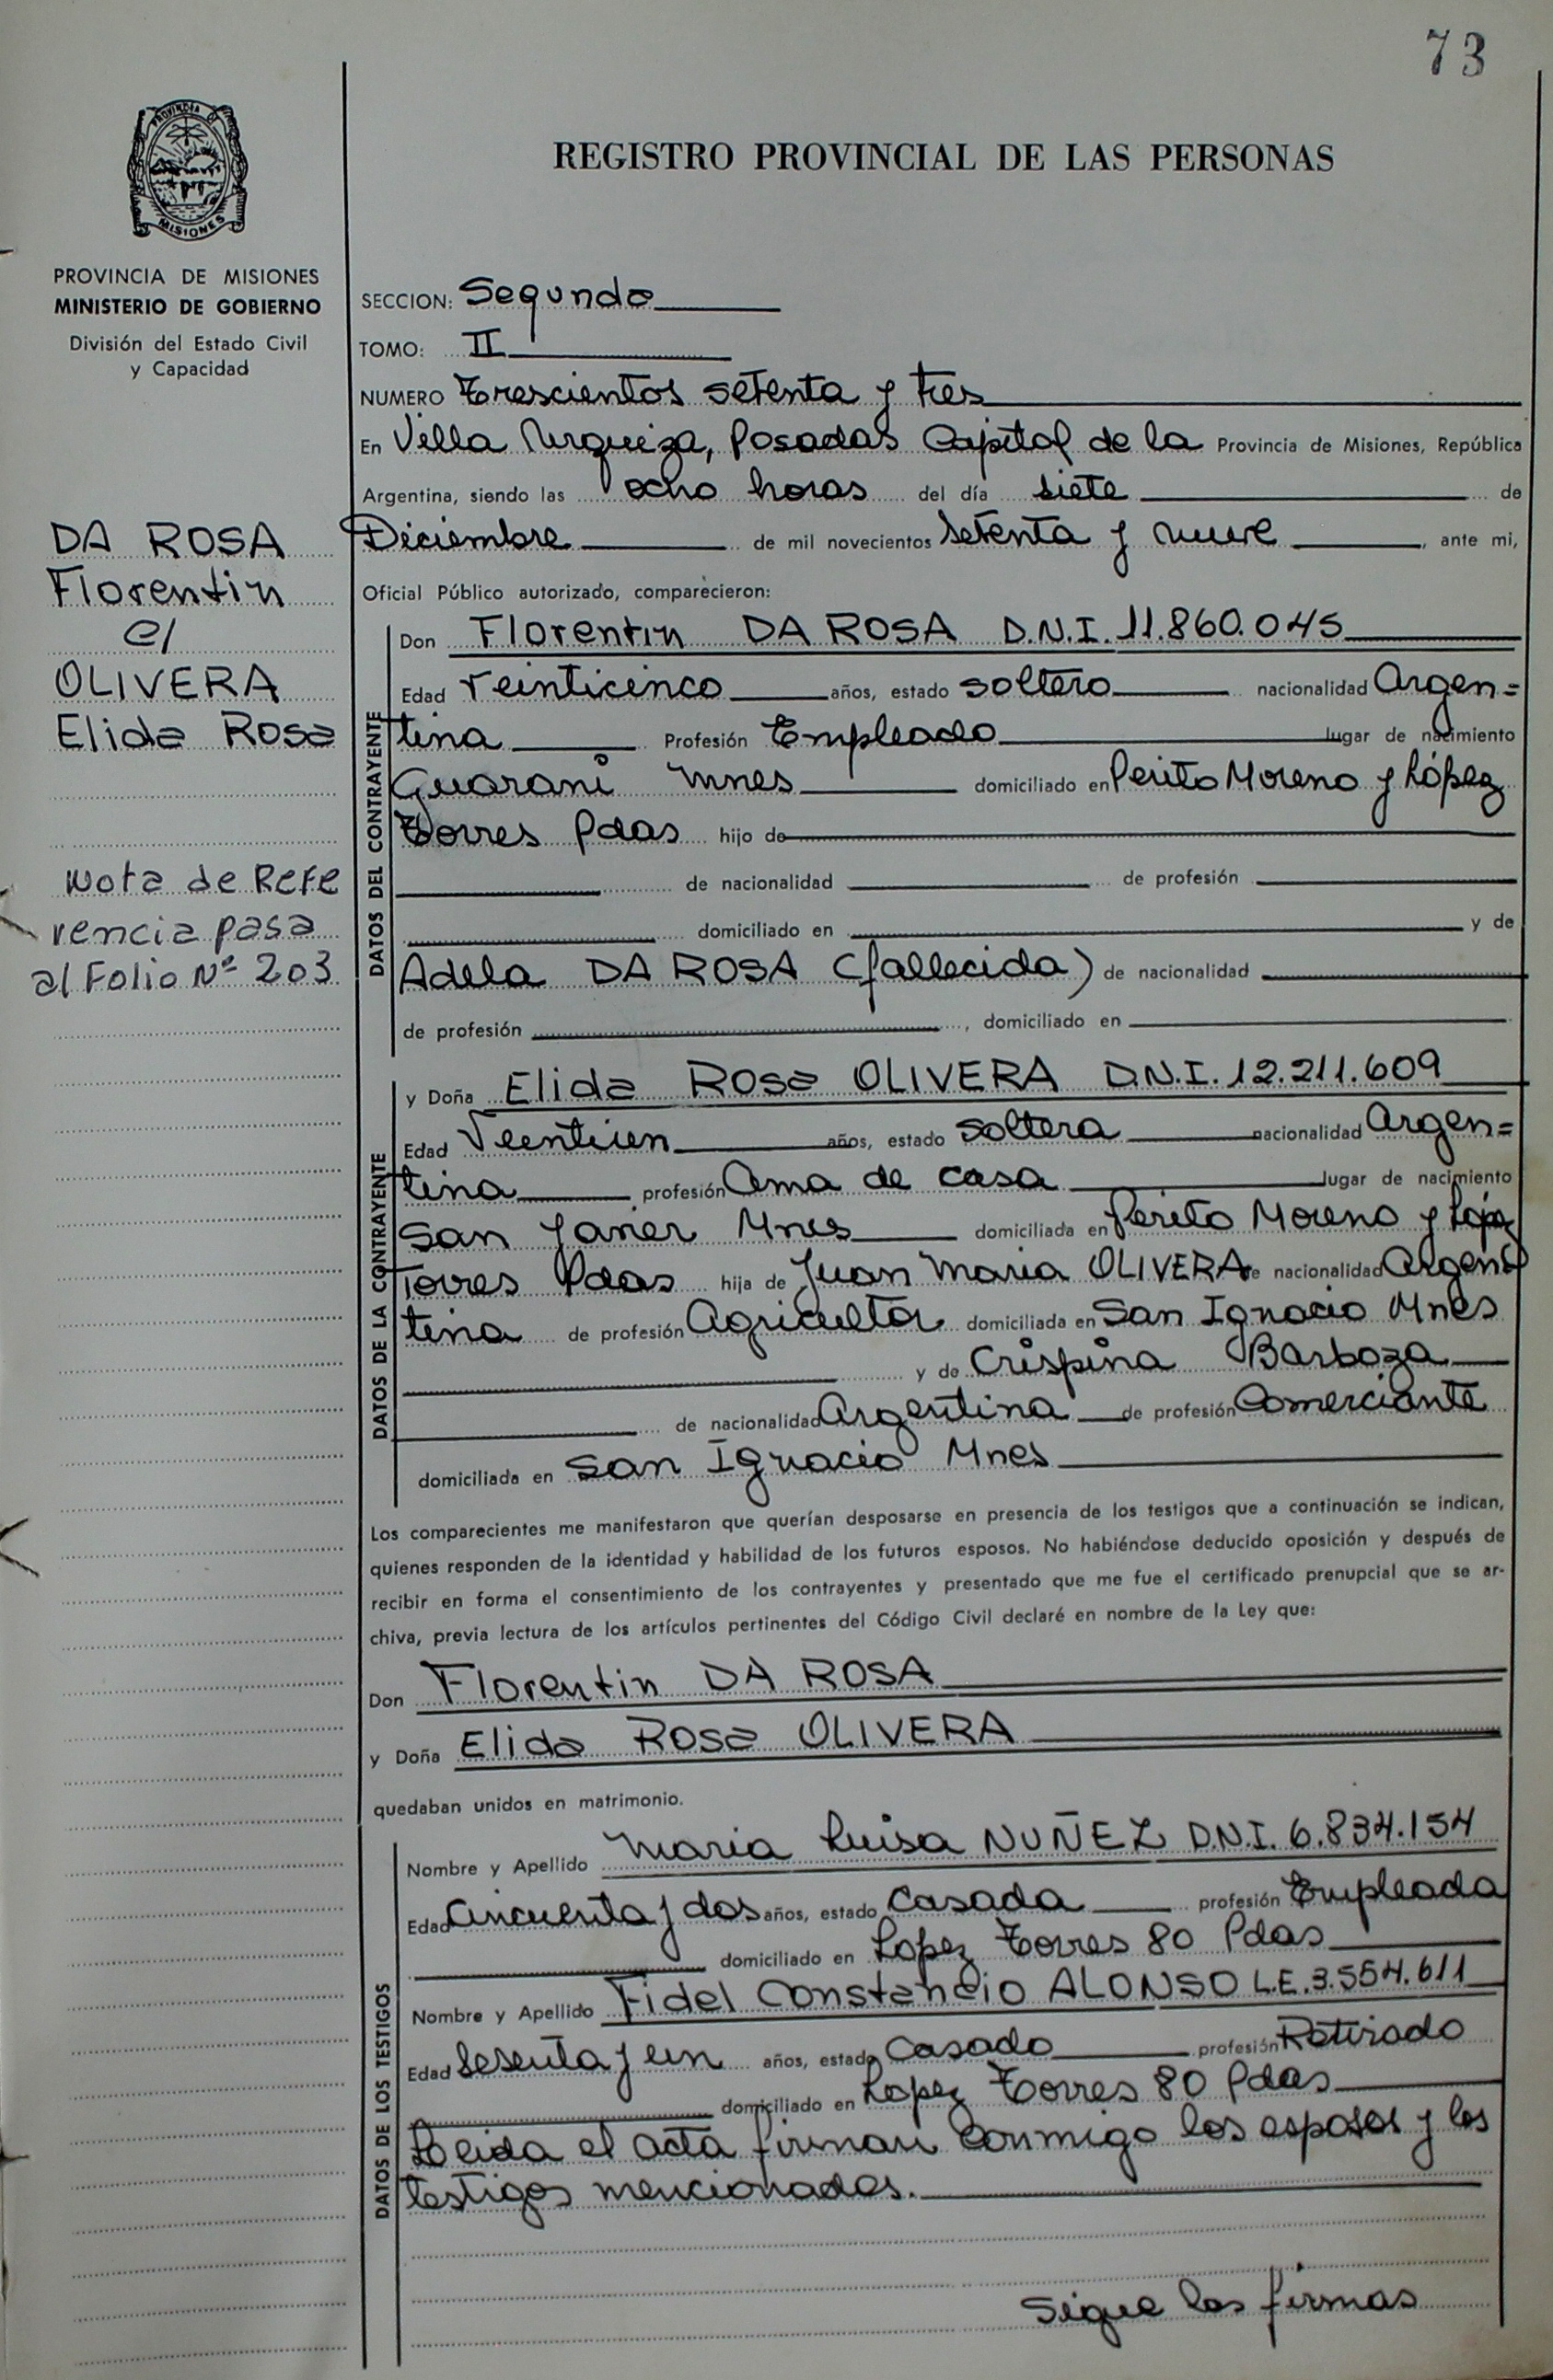 73
PROVINCIA DE
MISIONES
PROVINCIA DE MISIONES
MINISTERIO DE GOBIERNO
División del Estado Civil
y Capacidad
DA ROSA
Florentin
c/
OLIVERA
Elida Rosa
Nota de Refe
rencia pasa
al Folio Nº 203
REGISTRO PROVINCIAL DE LAS PERSONAS
SECCION: Segunda
TOMO: II
NUMERO Trescientos setenta y tres
En Villa Urquiza, Posadas Capital de la Provincia de Misiones, República
Argentina, siendo las ocho horas del día siete de
Diciembre de mil novecientos setenta y nueve, ante mi,
Oficial Público autorizado, comparecieron:
DATOS DEL CONTRAYENTE
Don Florentin DA ROSA D.N.I. 11.860.045
Edad veinticinco años, estado soltero nacionalidad Argen=
tina Profesión Empleado lugar de nacimiento
Guarani Mnes domiciliado en Perito Moreno y López
Torres Pdas hijo de
de nacionalidad de profesión
domiciliado en y de
Adela DA ROSA (fallecida) de nacionalidad
de profesión , domiciliado en
DATOS DE LA CONTRAYENTE
y Doña Elida Rosa OLIVERA D.N.I. 12.211.609
Edad Veintiun años, estado soltera nacionalidad Argen=
tina profesión Ama de casa lugar de nacimiento
San Javier Mnes domiciliada en Perito Moreno y López
Torres Pdas hija de Juan Maria OLIVERA de nacionalidad Argen=
tina de profesión Agricultor domiciliada en San Ignacio Mnes
y de Crispina Barboza
de nacionalidad Argentina de profesión Comerciante
domiciliada en San Ignacio Mnes
Los comparecientes me manifestaron que querían desposarse en presencia de los testigos que a continuación se indican,
quienes responden de la identidad y habilidad de los futuros esposos. No habiéndose deducido oposición y después de
recibir en forma el consentimiento de los contrayentes y presentado que me fue el certificado prenupcial que se ar-
chiva, previa lectura de los artículos pertinentes del Código Civil declaré en nombre de la Ley que:
Don Florentin DA ROSA
y Doña Elida Rosa OLIVERA
quedaban unidos en matrimonio.
DATOS DE LOS TESTIGOS
Nombre y Apellido Maria Luisa NUÑEZ D.N.I. 6.834.154
Edad Cincuenta y dos años, estado Casada profesión Empleada
domiciliado en Lopez Torres 80 Pdas
Nombre y Apellido Fidel Constancio ALONSO L.E. 3.554.611
Edad Sesenta y un años, estado Casado profesión Retirado
domiciliado en Lopez Torres 80 Pdas
Leida el acta firman conmigo los esposos y los
testigos mencionados.
Sigue las firmas